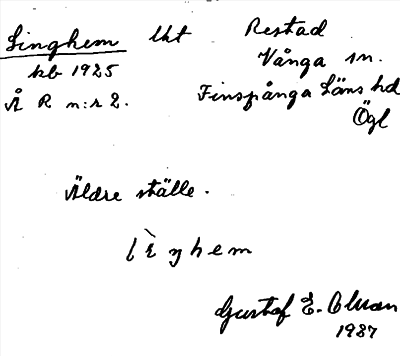 Linghem lht Restad
kb 1925 Vånga sn.
Å R n:r 2. Finspånga Läns hd
Ögl
Äldre ställe.
hem
Gustaf E. Olson
1937